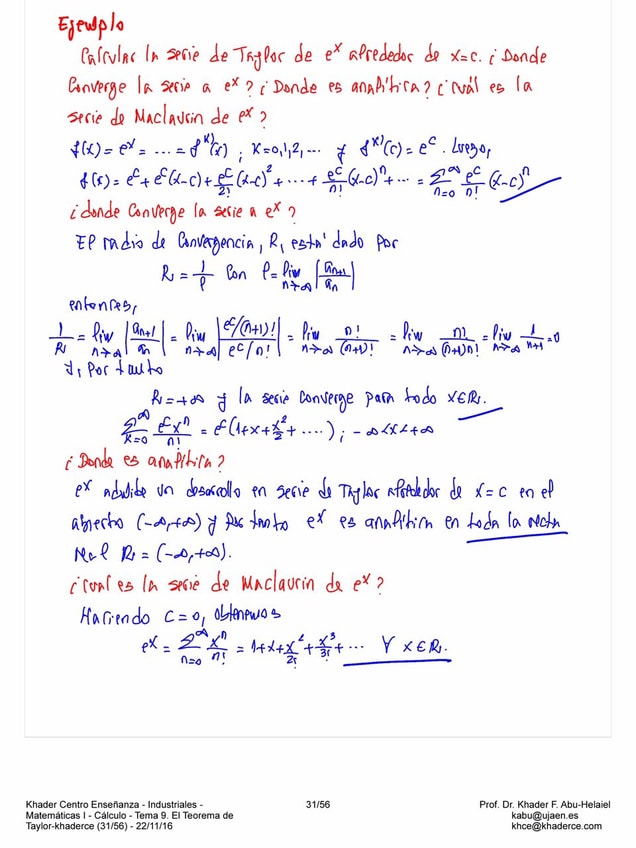 Ejemplo
Calcular la serie de Taylor de e^x alrededor de x=c. ¿Donde
Converge la serie a e^x? ¿Donde es analítica? ¿cuál es la
serie de Maclaurin de e^x?
f(x) = e^x = ... = f^(k)(x) ; k=0,1,2,... y f^(k)(c) = e^c. Luego,
f(x) = e^c + e^c(x-c) + e^c/2! (x-c)^2 + ... + e^c/n! (x-c)^n + ... = ∑_{n=0}^∞ e^c/n! (x-c)^n
¿donde Converge la serie a e^x?
El radio de Convergencia, R, está dado por
R = 1/ρ con ρ = lim_{n→∞} |a_{n+1}/a_n|
entonces,
1/R = lim_{n→∞} |a_{n+1}/a_n| = lim_{n→∞} |e^c/(n+1)! / e^c/n!| = lim_{n→∞} n!/(n+1)! = lim_{n→∞} n!/(n+1)n! = lim_{n→∞} 1/n+1 = 0
y, por tanto
R = +∞ y la serie converge para todo x∈R.
∑_{k=0}^∞ e^c x^n/n! = e^c(1+x+x^2/2+....) ; -∞<x<+∞
¿Donde es analítica?
e^x admite un desarrollo en serie de Taylor alrededor de x=c en el
abierto (-∞,+∞) y por tanto e^x es analítica en toda la recta
real R = (-∞,+∞).
¿cual es la serie de Maclaurin de e^x?
Haciendo c=0, obtenemos
e^x = ∑_{n=0}^∞ x^n/n! = 1+x+x^2/2!+x^3/3!+... ∀ x∈R.
Khader Centro Enseñanza - Industriales -
Matemáticas I - Cálculo - Tema 9. El Teorema de
Taylor-khaderce (31/56) - 22/11/16
31/56
Prof. Dr. Khader F. Abu-Helaiel
kabu@ujaen.es
khce@khaderce.com